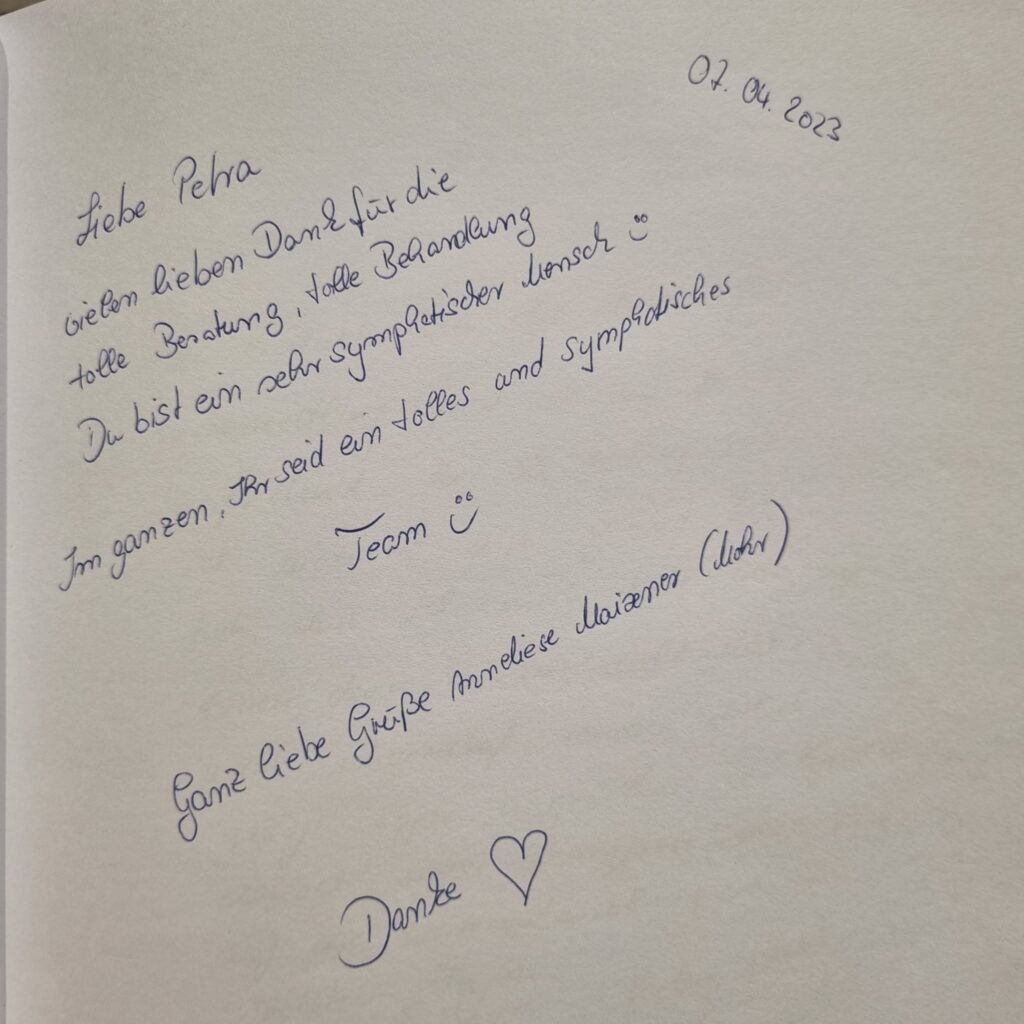 07.04.2023
Liebe Petra
vielen lieben Dank für die
tolle Beratung, tolle Behandlung
Du bist ein sehr symphatischer Mensch
Im ganzen, Ihr seid ein tolles und symphatisches
Team
Ganz liebe Grüße Anneliese (Mohr)
Danke